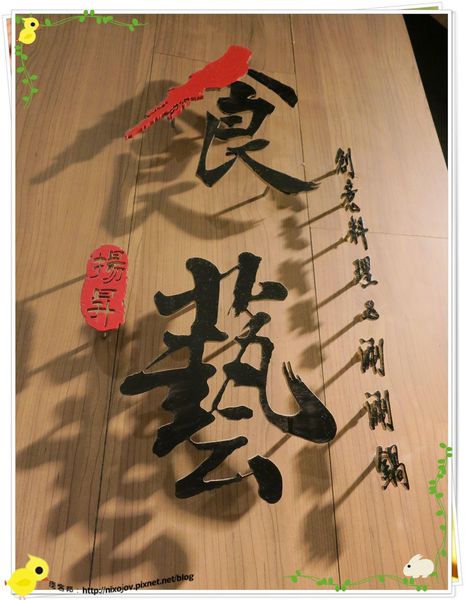 食藝
創意料理&涮涮鍋
揚昇
痞客邦：http://nixojov.pixnet.net/blog